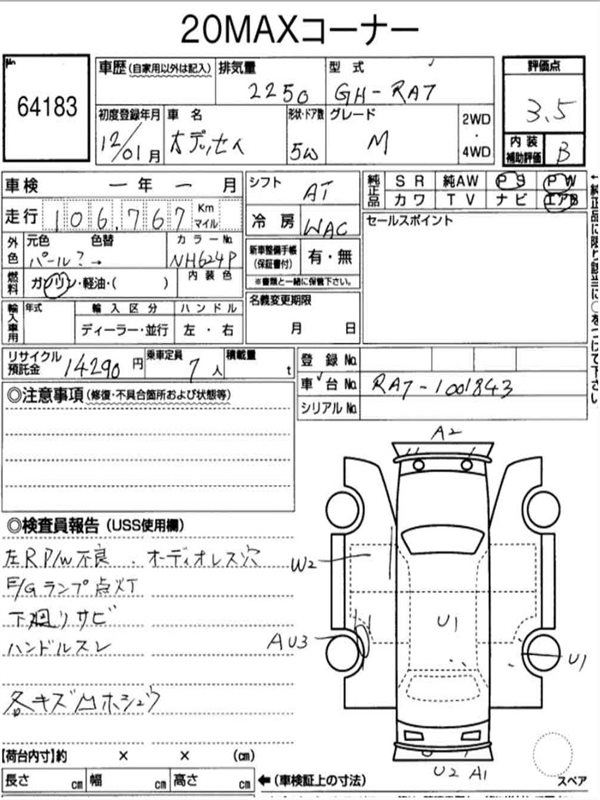 20MAXコーナー
No 64183
車歴 (自家用以外は記入) 排気量 2250 型式 GH-RA7
評価点 3.5
内装補助評価 B
初度登録年月 12/01月 車名 オデッセイ 形状・ドア数 5W グレード M 2WD・4WD
車検 ー年ー月 シフト AT
走行 106,767 Km マイル 冷房 WAC
純正品 SR 純AW PS PW
カワ TV ナビ エアB
←純正品に限り該当に○をつけて下さい
セールスポイント
外色 元色 色替 カラーNo.
パール?→ NH624P
新車整備手帳(保証書付) 有・無
※書類と一緒に保管下さい。
燃料 ガソリン・軽油・( ) 内装色
輸入車用 年式 輸入区分 ハンドル
ディーラー・並行 左・右
名義変更期限 月 日
リサイクル預託金 14290円 乗車定員 7人 積載量 t
登録No.
車台No. RA7-1001843
シリアルNo.
◎注意事項 (修復・不具合箇所および状態等)
◎検査員報告 (USS使用欄)
左RP/W不良.オーディオレス穴
E/Gランプ点灯
下廻りサビ
ハンドルスレ
各キズ凹ホシュウ
A2
W2
U1
AU3
U1
U2 A1
スペア
【荷台内寸】約 × × (cm)
長さ cm 幅 cm 高さ cm ←(車検証上の寸法)